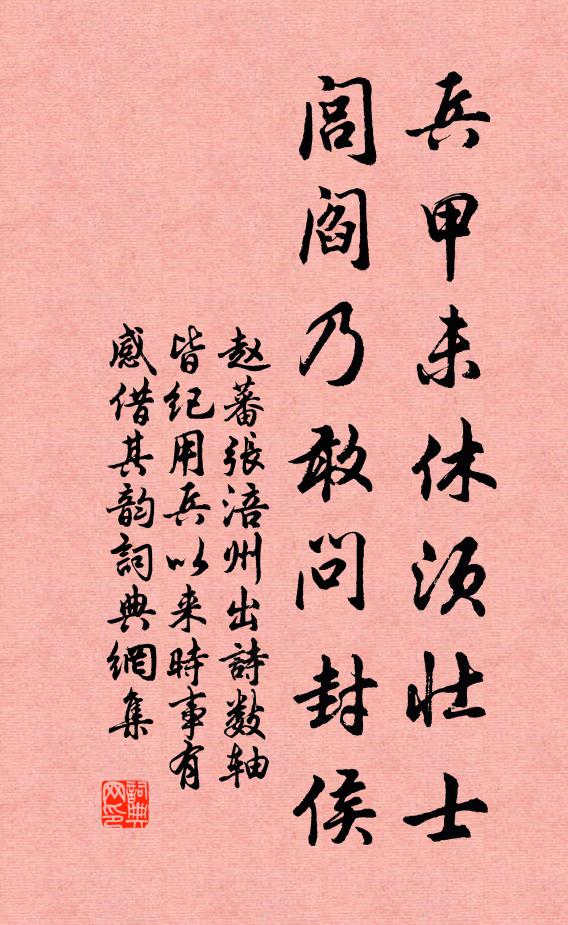 兵甲未休须壮士
闾阎乃敢问封侯
赵蕃張涪州出詩数轴
皆纪用兵以来時事有
感借其韵詞典網集
詞典网印